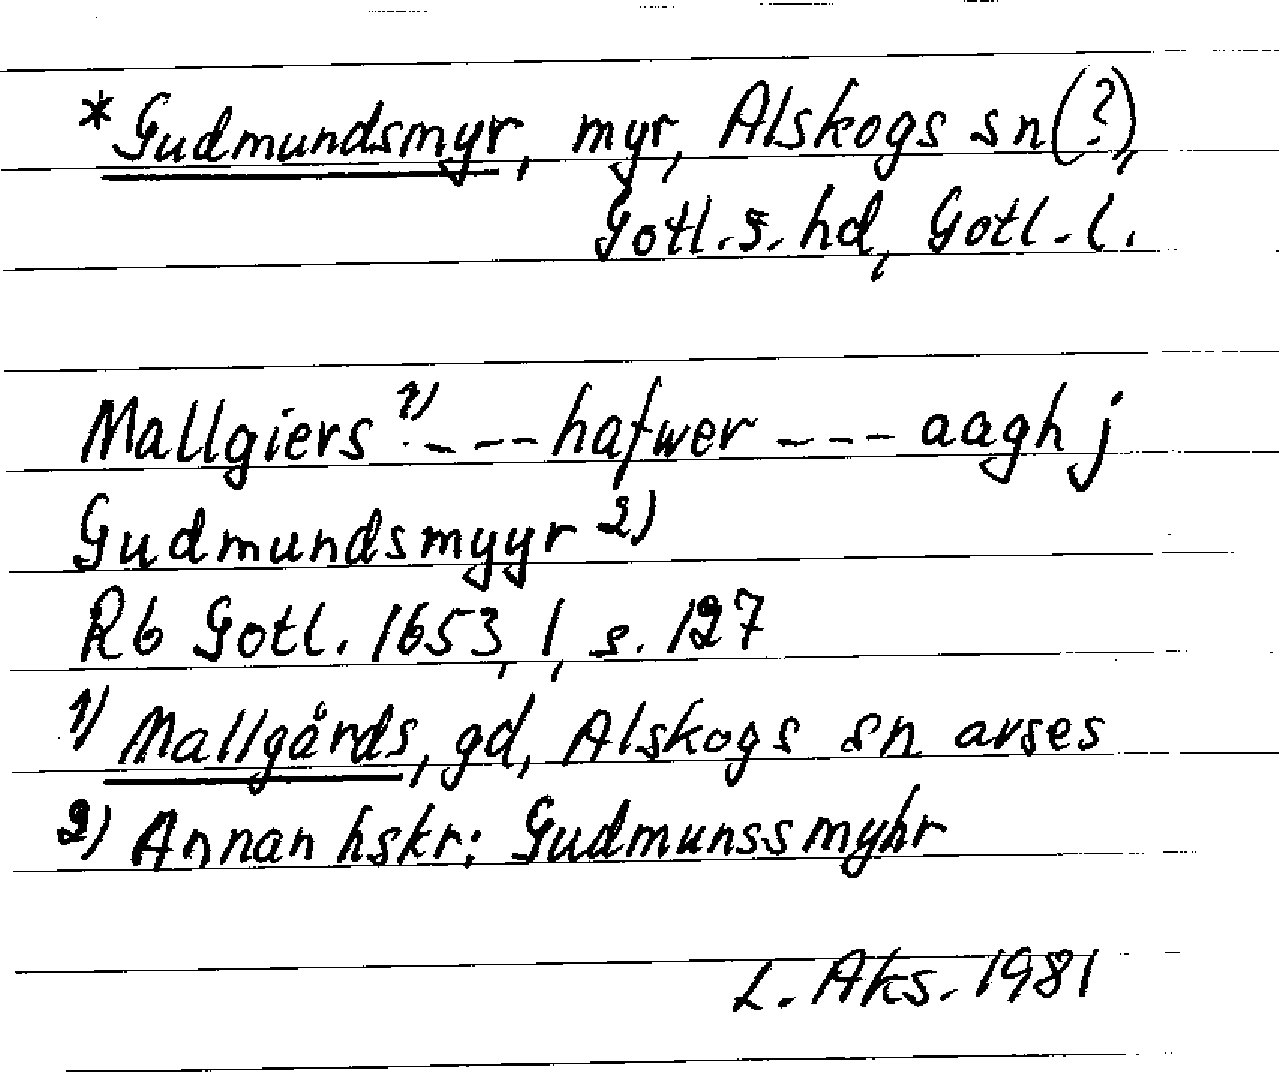 *Gudmundsmyr, myr, Alskogs sn(?),
Gotl.s.hd, Gotl.l.
Mallgiers 1) ---- hafwer ---- aagh j
Gudmundsmyyr 2)
Rb Gotl. 1653, 1, s. 127
1) Mallgårds, gd, Alskogs sn avses
2) Annan hskr: Gudmunssmyhr
L. Aks. 1981